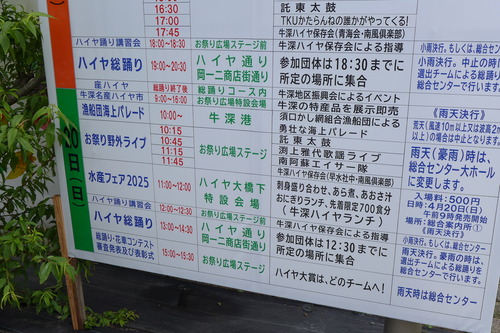 16:30
17:00
17:45
託東太鼓
TKUかたらんねの誰かがやってくる!
牛深ハイヤ保存会(青海会・南風倶楽部)
ハイヤ踊り講習会
18:00~18:30
お祭り広場ステージ前
ハイヤ保存会による指導
小雨決行。もしくは、総合センター
ハイヤ総踊り
19:00~20:30
ハイヤ通り
岡一二商店街通り
参加団体は18:30までに
所定の場所に集合
小雨決行。中止の時は
選出チームによる総踊りを
総合センターで行います。
座ハイヤ
総踊り終了後
総踊りコース内
牛深地区振興会によるイベント
牛深名産ハイヤ市
9:00~16:00
お祭り広場特設会場
牛深の特産品を展示即売
漁船団海上パレード
10:00~
牛深港
須口かし網組合漁船団による
勇壮な海上パレード
《雨天決行》
荒天(風速10m以上又は波高2m
以上)の場合は中止となります。
20日(日)
お祭り野外ライブ
10:15
10:45
11:15
11:45
お祭り広場ステージ
託東太鼓
渕上雅代歌謡ライブ
南阿蘇エイサー隊
ハイヤ保存会(早水社中・南風倶楽部)
雨天(豪雨)時は、
総合センター大ホール
に変更します。
水産フェア2025
11:00~12:00
ハイヤ大橋下
特設会場
刺身盛り合わせ、あら煮、あおさ汁
おにぎりランチ、先着限定700食分
(牛深ハイヤランチ)
入場料:500円
日時:4月20日(日)
午前9時発売開始
場所:総合案内所①
《雨天決行》
ハイヤ踊り講習会
12:00~12:30
お祭り広場ステージ前
ハイヤ保存会による指導
小雨決行。もしくは、総合センター
ハイヤ総踊り
13:00~14:30
ハイヤ通り
岡一二商店街通り
参加団体は12:30までに
所定の場所に集合
雨天決行。豪雨の時は、
選出チームによる総踊りを総
合センターで行います。
総踊り・花車コンテスト
審査発表及び表彰式
15:00~15:30
お祭り広場ステージ
ハイヤ大賞は、どのチームへ!
雨天時は総合センター